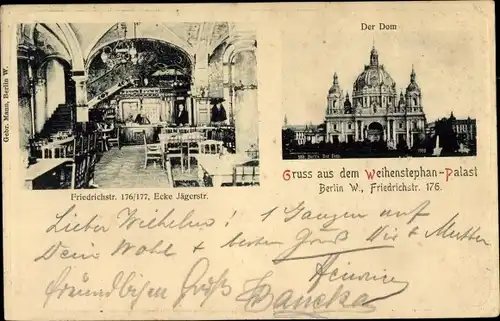 Der Dom
Gebr. Mann, Berlin W.
Berlin. Der Dom
Friedrichstr. 176/177, Ecke Jägerstr.
Gruss aus dem Weihenstephan-Palast
Berlin W., Friedrichstr. 176.
Lieber Wilhelm! 1 Ganzen auf
Dein Wohl & besten Gruß & Mutter
Freundlichen Gruß